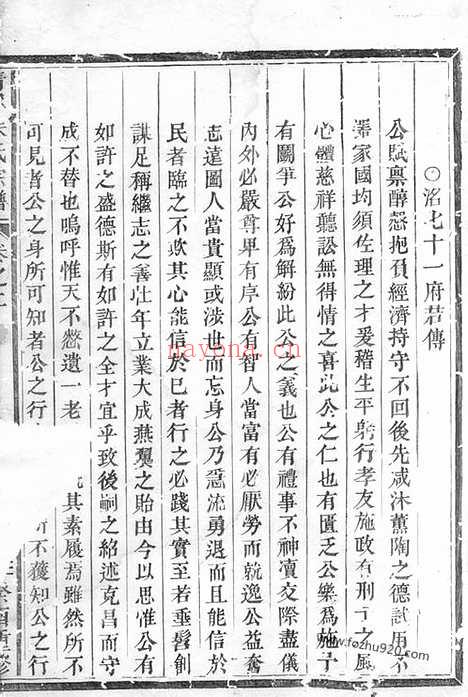 ○洺七十一府君傳
公賦禀醇慤抱負經濟持守不囘後先咸沐薰陶之德試用不
家國均須佐理之才爰稽生平躬行孝友施政有刑于之風
心體慈祥聽訟無得情之喜此公之仁也有匱乏公樂爲施予
有鬭爭公好爲解紛此公之義也公有禮事不神瀆交際盡儀
內外必嚴尊卑有序公有智人當富有必厭勞而就逸公益奮
志遠圖人當貴顯或涉世而忘身公乃急流勇退而且能信於
民者臨之不欺其心能信於己者行之必踐其實至若垂裕創
謀足稱繼志之善壯年立業大成燕翼之貽由今以思惟公有
如許之盛德斯有如許之全才宜乎致後嗣之紹述克昌而守
成不替也嗚呼惟天不慭遺一老 其素履焉雖然所不
可見者公之身所可知者公之行 所不獲知公之行
宗譜 卷之
重修
nayona.cn
www.fozhu920.com